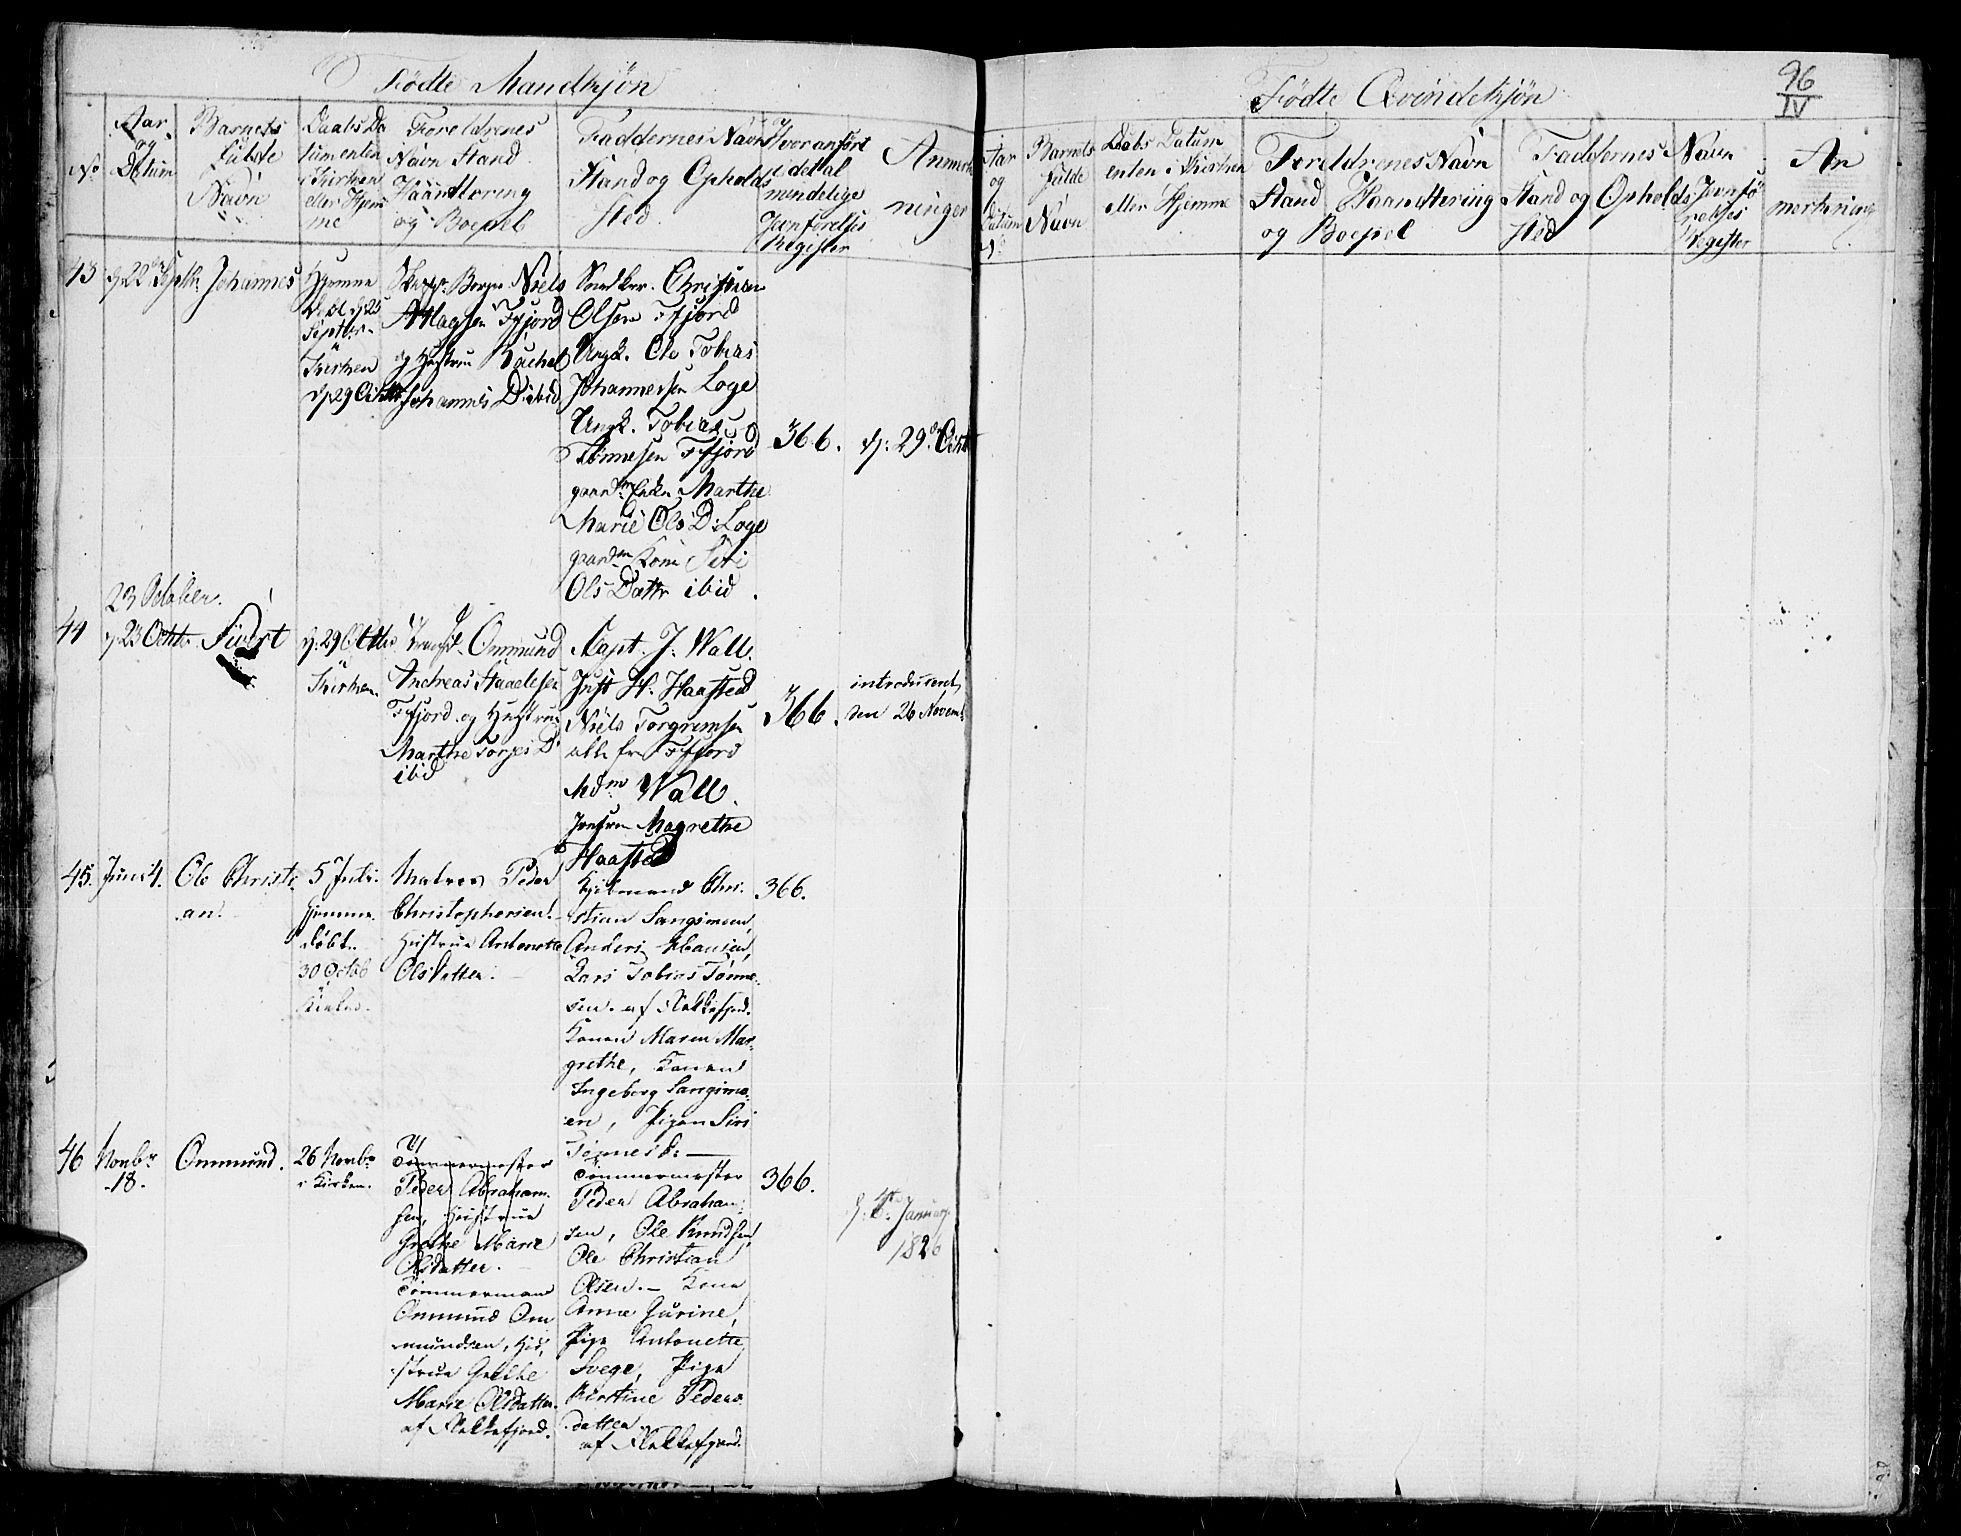 Födte Mandkjön
No
Aar
og
Datum
Barnets
fulde
Navn
Daabs Da
tumenten
i Kirken
eller Hjem
me
Foreldrenes
Navn Stand
Haandtering
og Boepæl
Faddernes Navn
Stand og Opholds
sted
Hvor anfört
i det al
mindelige
Jevnförelses
Register
Anmerk
ninger
43
d. 22 Septbr.
Johannes
Hjemme
döbt d. 25
Septbr.
i
Kirken
d. 29 Octbr
Borger Niels
Atlagsen Ffjord
og Hustrue Rachel
Johannis D: ibid
Christian
Olsen Ffjord
Ungk. Ole Tobias
Johannessen Loge
Ungk. Tobias
Tönnesen Ffjord
Enke Marthe
Marie Ols D: Loge
Kone Siri
Ols Dattr ibid.
366.
d: 29 Octb
23 October.
44
d. 23 Octbr
Sivert
d. 29 Octbr
Kirken.
Ommund
Andreas Staalesen
Ffjord og Hustrue
Marthe Torjes D.
ibid
Capt. J. Wall.
Just H. Haasted
Niels Torgrimsen
alle fra Ffjord
Mdm Wall.
Jomfru Magrethe
Haasted
366.
introduceret
den 26 Novem
45.
Juni 4.
Ole Christi-
an.
5 Juli.
hjemme
döbt.
30 Octob
i
Kirken.
Matros Peder
Christophersen.
Hustrue Antonette
Olsdatter.
Kjöbmand Chri-
stian Sangsmoen,
Anders Hansen,
Lars Tobias Tönne-
sen. af Flekkefjord.
Konen Maren Mar-
grethe, Konen
Ingeborg Sangsmo-
en, Pigen Siri
Tönnesd. —
366.
46
Novbr
18.
Ommund.
26 Novbr
i Kirken.
Tömmermester
Peder Abraham-
sen, Hustrue
Grethe Marie
Olsdatter. —
Tömmermand
Ommund Om
mundsen, Hu-
strue Grethe
Marie Olsdatter.
af Flekkefjord.
Tömmermester
Peder Abraham-
sen, Ole Knudsen,
Ole Christian
Olsen. — Kone
Anne Gurine,
Pige Antonette
Svege, Pige
Kirstine Peders
datter
af Flekkefjord.
366.
Januar
1826
Födte Qvindekjön
96
IV
Aar
og
Datum
Barnets
fulde
Navn
Daabs Datum
enten i Kirken
eller Hjemme
Foreldrenes Navn
Stand Haandtering
og Boepæl
Faddernes Navn
Stand og Opholds
sted
Jevnfö
relses
Register
An
merkning